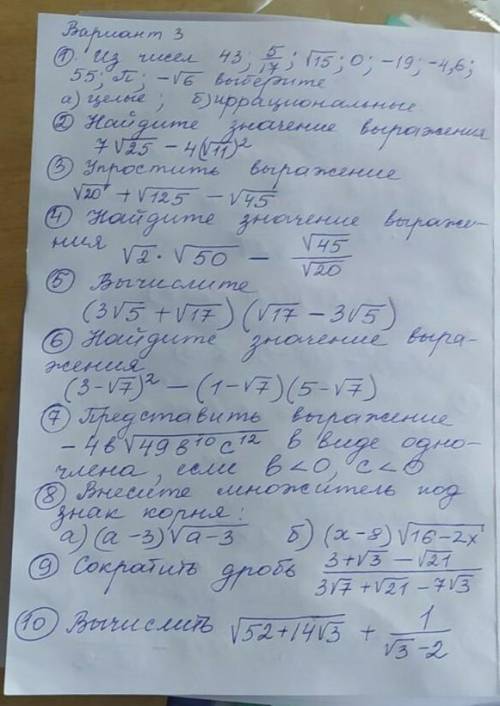 Вариант 3
① Из чисел 43; 5/17; √15; 0; -19; -4,6;
55; π; -√6 выберите
а) целые; б) иррациональные
② Найдите значение выражения
7√25 - 4(√11)²
③ Упростить выражение
√20 + √125 - √45
④ Найдите значение выраже-
ния √2 · √50 - √45/√20
⑤ Вычислите
(3√5 + √17)(√17 - 3√5)
⑥ Найдите значение выра-
жения
(3-√7)² - (1-√7)(5-√7)
⑦ Представить выражение
-4в√(49в¹⁰с¹²) в виде одно-
члена, если в<0, с<0
⑧ Внесите множитель под
знак корня:
а) (а-3)√(а-3) б) (х-8)√(16-2х)
⑨ Сократить дробь (3+√3-√21)/(3√7+√21-7√3)
⑩ Вычислить √(52+14√3) + 1/(√3-2)